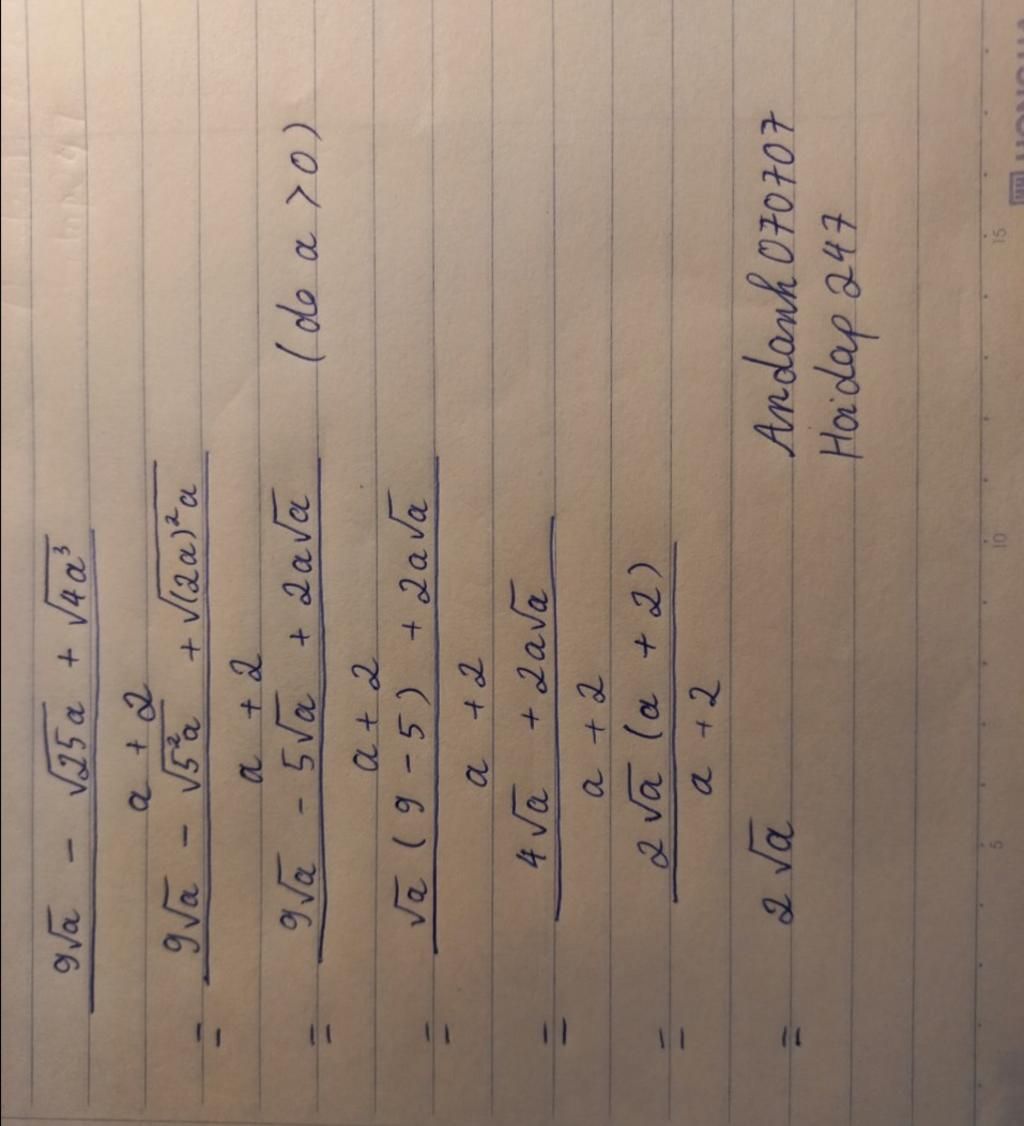 9√a - √25a + √4a³
a + 2
= 9√a - √5²a + √(2a)²a
a + 2
= 9√a - 5√a + 2a√a (do a > 0)
a + 2
= √a (9 - 5) + 2a√a
a + 2
= 4√a + 2a√a
a + 2
= 2√a (a + 2)
a + 2
= 2√a
Andanh070707
Hoidap247
5 10 15